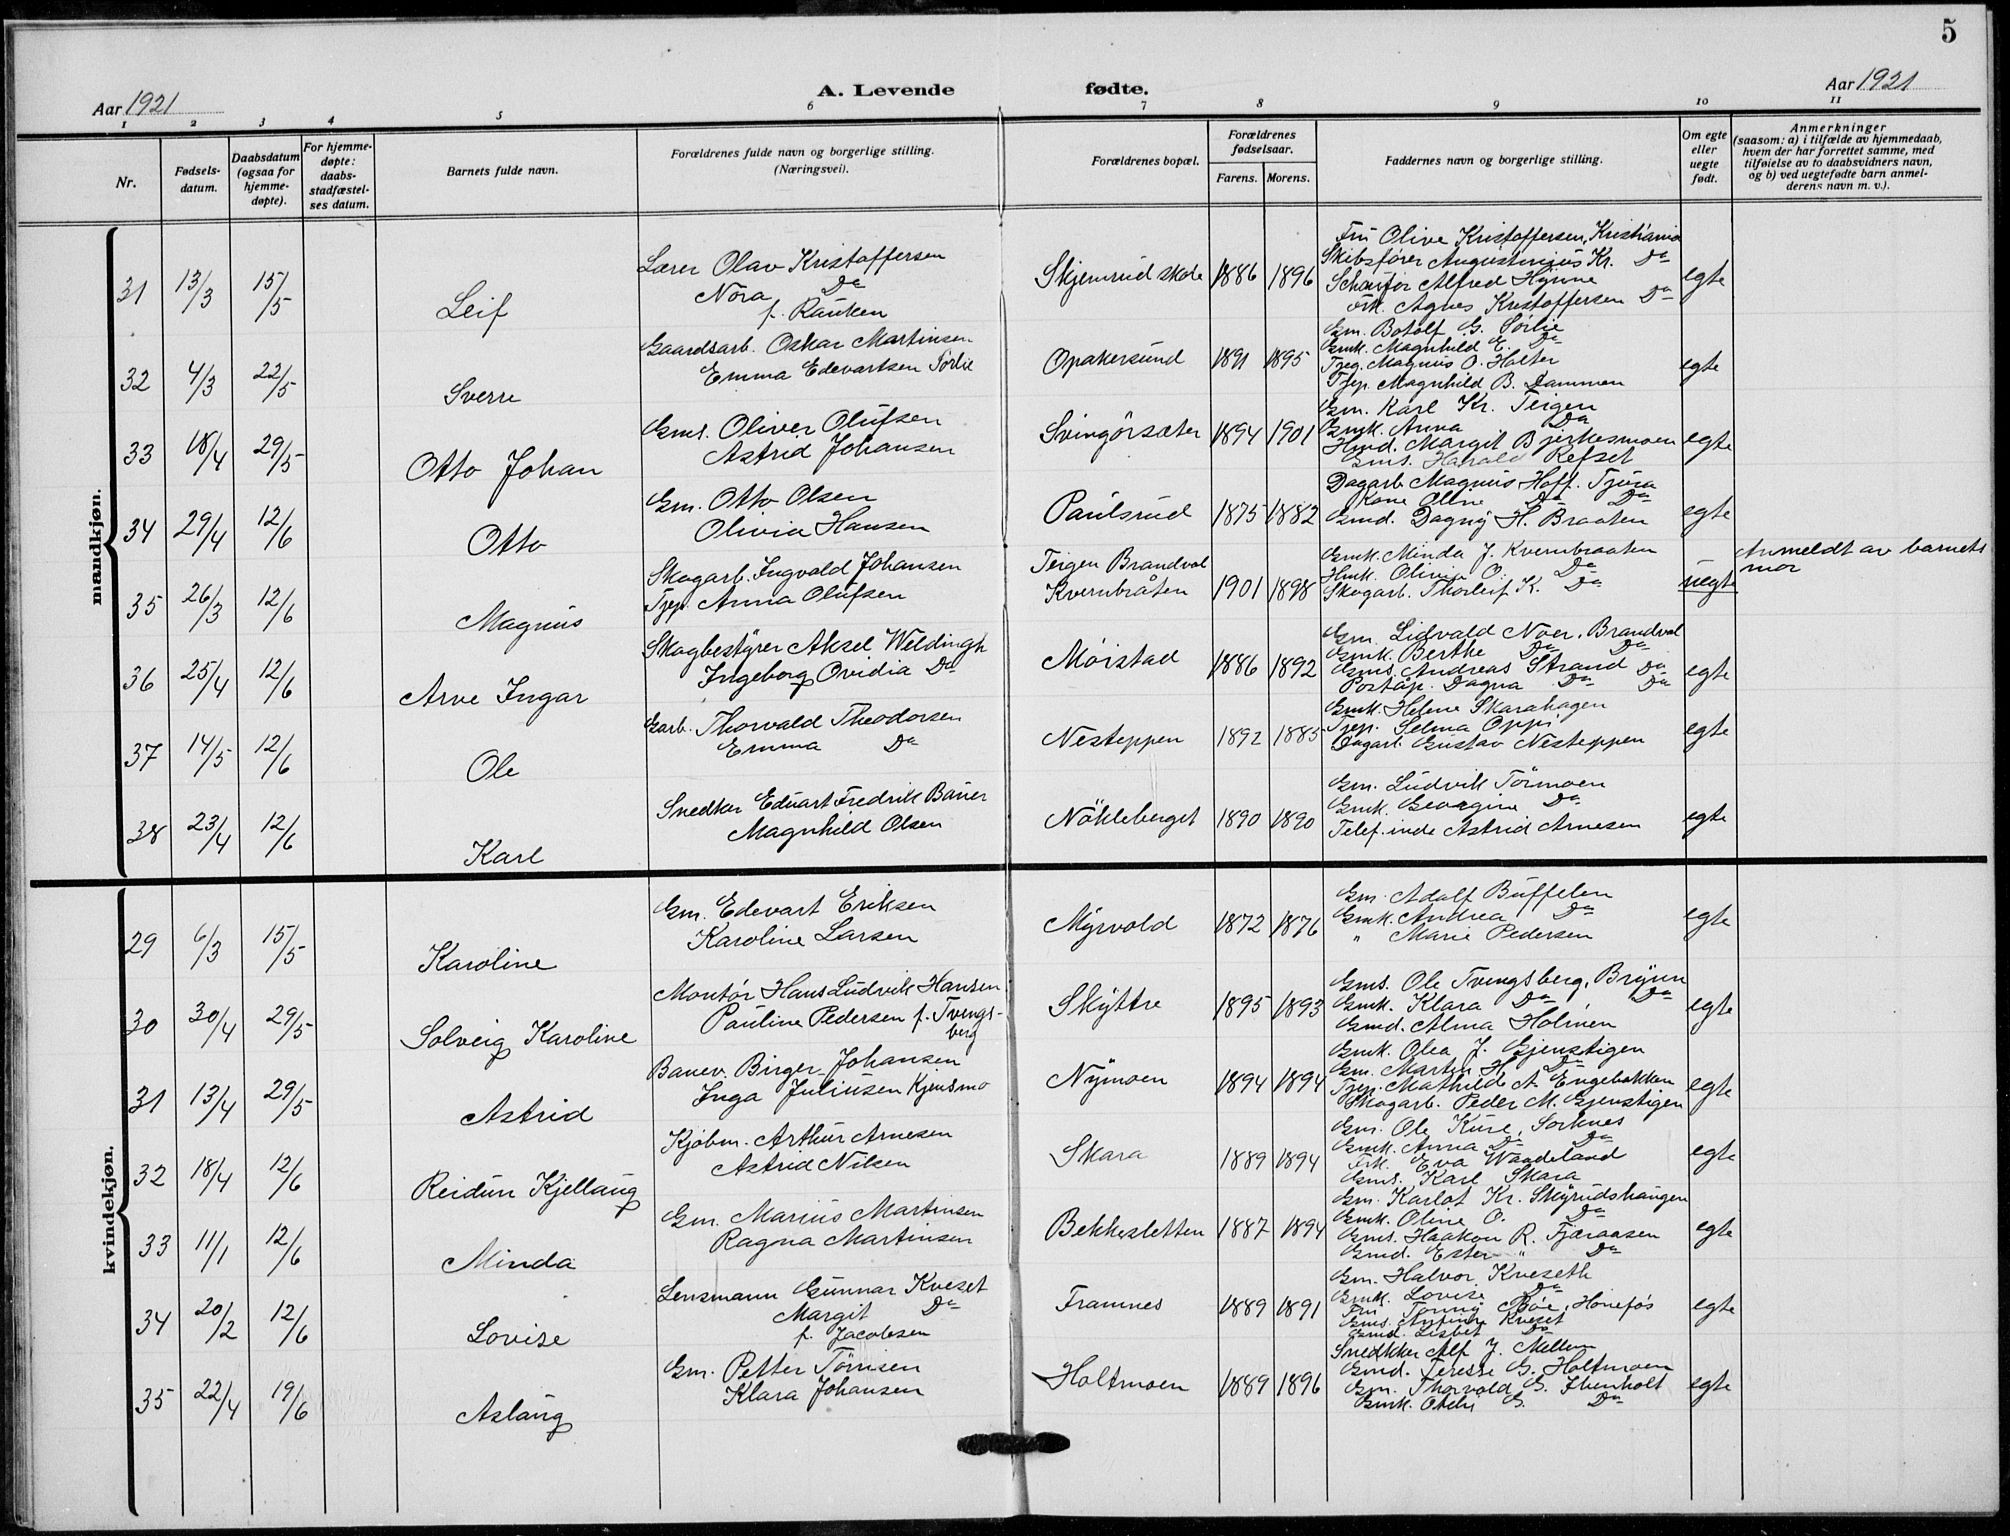 5
Aar 1921
A. Levende fødte.
Aar 1921
1 2 3 4 5 6 7 8 9 10 11
Nr.
Fødsels-
datum.
Daabsdatum
(ogsaa for
hjemme-
døpte).
For hjemme-
døpte:
daabs-
stadfæstel-
ses datum.
Barnets fulde navn.
Forældrenes fulde navn og borgerlige stilling.
(Næringsvei).
Forældrenes bopæl.
Forældrenes
fødselsaar.
Farens. Morens.
Faddernes navn og borgerlige stilling.
Om egte
eller
uegte
født.
Anmerkninger
(saasom: a) i tilfælde av hjemmedaab,
hvem der har forrettet samme, med
tilføielse av to daabsvidners navn,
og b) ved uegtefødte barn anmel-
derens navn m. v.).
mandkjøn.
31 13/3 15/5 Leif
Lærer Olav Kristoffersen
Nora Do
f. Rauken
Skjemrud skole 1886 1896
Fru Olive Kristoffersen, Kristiania
Skibsfører Augustinius Kr. Do
Schauför Alfred Hynne
Frk. Agnes Kristoffersen Do
egte
32 4/3 22/5 Sverre
Gaardsarb. Oskar Martinsen
Emma Edevartsen Sørlie
Opakersund 1891 1895
Gm. Botolf G. Sørlie
Gmk. Magnhild E. Do
Tjeg. Magnus O. Holter
Tjep. Magnhild B. Dammen
egte
33 18/4 29/5 Otto Johan
Gms. Oliver Olufsen
Astrid Johansen
Svingörsæter 1894 1901
Gm. Karl Kr. Teigen
Gmk. Anna Do
Hmd. Margit Bjerkesmoen
Gms. Harald Refset
egte
34 29/4 12/6 Otto
Gm. Otto Olsen
Olivia Hansen
Paulsrud 1875 1882
Dagarb. Magnus Hoff. Tjura
Kone Oline Do Do
Gmd. Dagny H. Braaten
egte
35 26/3 12/6 Magnus
Skogarb. Ingvald Johansen
Tjep. Anna Olufsen
Teigen Brandval
Kvernbråten 1901 1898
Gmk. Minda J. Kvernbraaten
Hmk. Olivia O. Do
Skogarb. Thorleif K. Do
uegte
Anmeldt av barnets
mor
36 25/4 12/6 Arve Ingar
Skogbestyrer Aksel Weldingh
Ingeborg Ovidia Do
Moistad 1886 1892
Gm. Lidvald Noer, Brandval
Gmk. Berthe Do Do
Gms. Andreas Strand Do
Poståp. Dagna Do Do
egte
37 14/5 12/6 Ole
Garb. Thorvald Theodorsen
Emma Do
Nesteppen 1892 1885
Gmk. Helene Skarahagen
Tjep. Selma Oppi
Dagarb. Gustav Nesteppen
egte
38 23/4 12/6 Karl
Snedker Eduart Fredrik Bauer
Magnhild Olsen
Nökleberget 1890 1890
Gm. Ludvik Törmoen
Gmk. Georgine Do
Telef.inde Astrid Arnesen
egte
kvindekjøn.
29 6/3 15/5 Karoline
Gm. Edevart Eriksen
Karoline Larsen
Myrvold 1872 1876
Gm. Adolf Buffelen
Gmk. Andrea Do
" Marie Pedersen
egte
30 30/4 29/5 Solveig Karoline
Montør Hans Ludvik Hansen
Pauline Pedersen f. Tvengs-
berg
Skyttre 1895 1893
Gms. Ole Tvengsberg, Bryun
Gmk. Klara Do Do
Gmd. Alma Holmen
egte
31 13/4 29/5 Astrid
Banev. Birger Johansen
Inga Juliusen Kjensmo
Nymoen 1894 1894
Gmk. Olea J. Gjenstigen
Gm. Martin H. Do
Tjep. Mathilde A. Engebakken
Skogarb. Peder M. Gjenstigen
egte
32 18/4 12/6 Reidun Kjellaug
Kjöbm. Arthur Arnesen
Astrid Nilsen
Skara 1889 1894
Gm. Ole Kure, Sorknes
Gmk. Anna Do Do
Frk. Eva Wandeland
Gms. Karl Skara
egte
33 11/1 12/6 Minda
Gm. Marius Martinsen
Ragna Martinsen
Bekkesletten 1887 1894
Gm. Karlot Kr. Skyrudshaugen
Gmk. Oline O. Do
Gms. Haakon R. Fjæraasen
Gmd. Ester " Do
egte
34 20/2 12/6 Lovise
Lensmann Gunnar Kveset
Margit Do
f. Jacobsen
Framnes 1889 1891
Gm. Halvor Kveseth
Gmk. Lovise Do
Fru Tonny Böe, Hönefos
Gms. Kveset
Gmd. Lisbet Do
egte
35 22/4 19/6 Aslaug
Gm. Petter Tönnsen
Klara Johansen
Holtmoen 1889 1896
Snedkker Alf J. Mellem
Gmd. Terese G. Holtmoen
Gm. Thorvald S. Ibenholt
Gmk. Othelie S. Do
egte